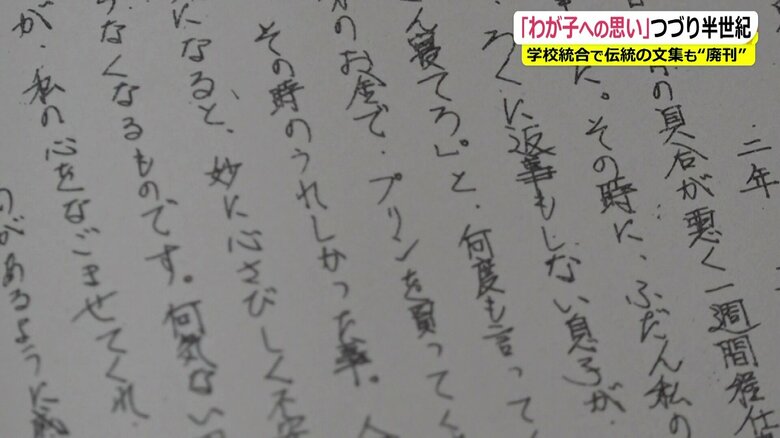 「わが子への思い」つづり半世紀
学校統合で伝統の文集も“廃刊”
二年
の具合が悪く一週間程仕
に。その時に、ふだん私の
ろくに返事もしない息子が、
ん寝てろ。」と、何度も言って
のお金で、プリンを買ってく
その時のうれしかった事。人
になると、妙に心さびしく不安
なくなるものです。何気ない
が、私の心をなごませてくれ
があるように